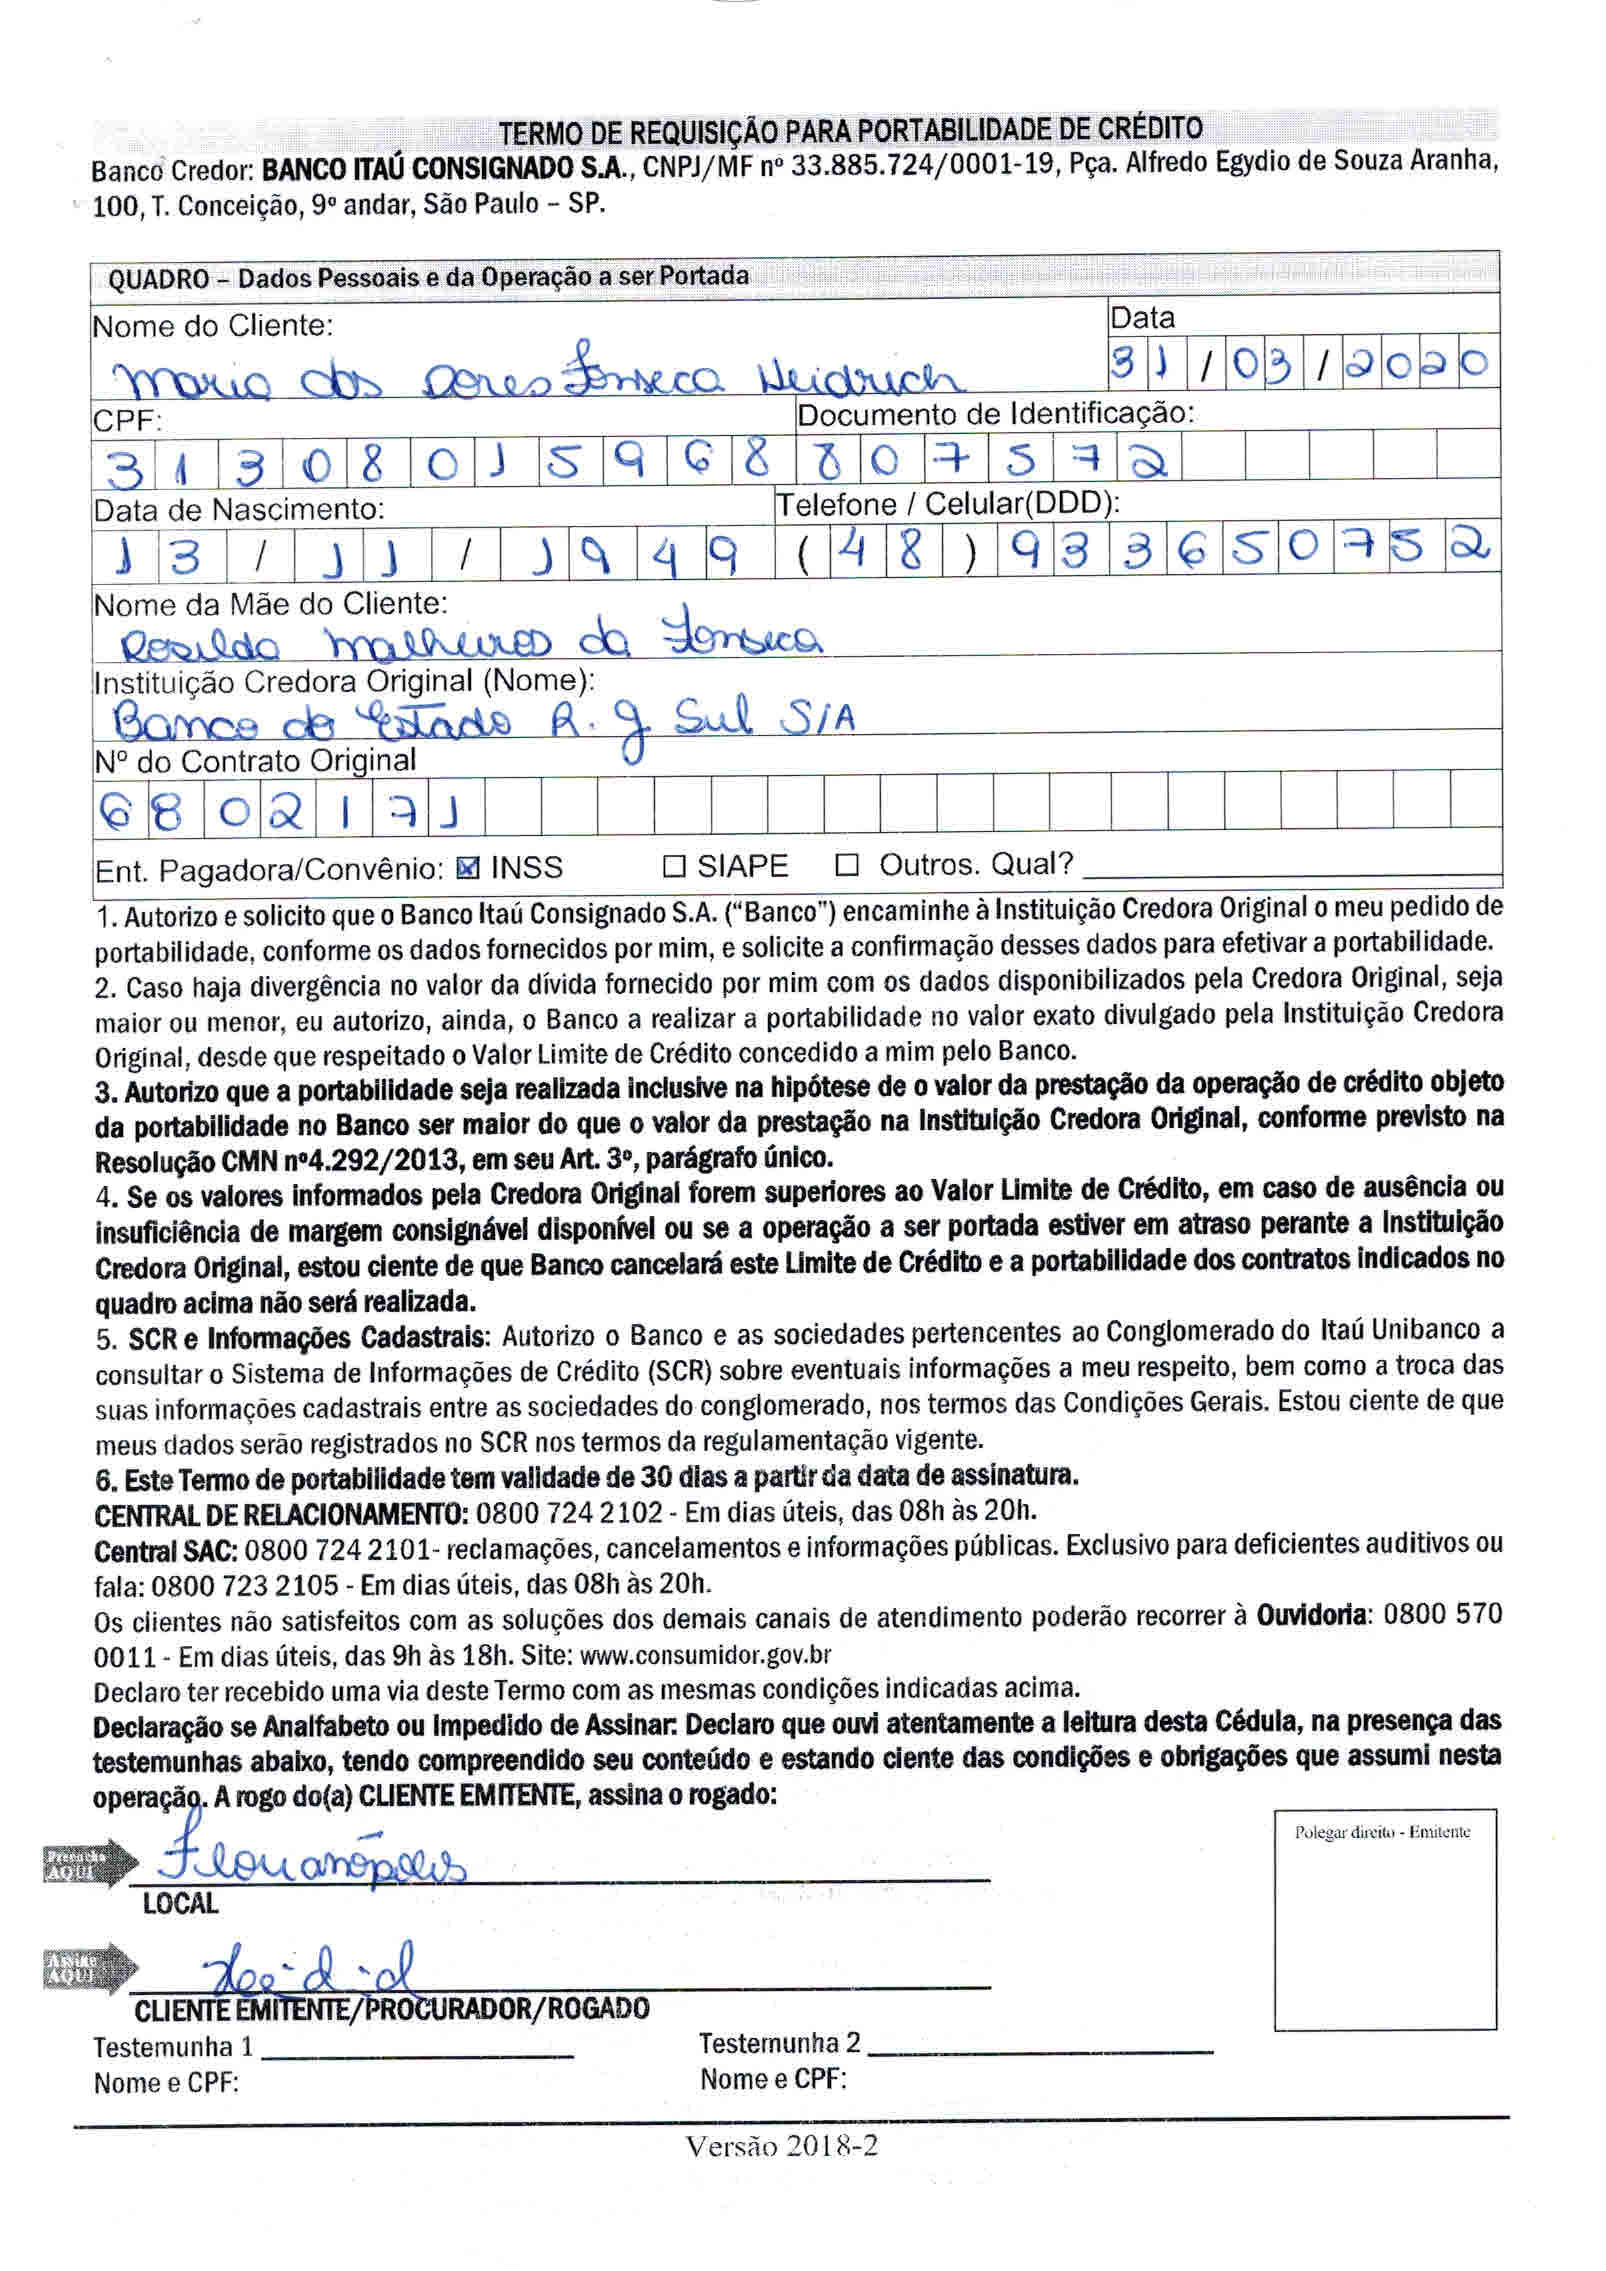 TERMO DE REQUISIÇÃO PARA PORTABILIDADE DE CRÉDITO
Banco Credor: BANCO ITAÚ CONSIGNADO S.A., CNPJ/MF nº 33.885.724/0001-19, Pça. Alfredo Egydio de Souza Aranha,
100, T. Conceição, 9º andar, São Paulo – SP.
QUADRO – Dados Pessoais e da Operação a ser Portada
Nome do Cliente: Data
Maria das Dores Fonseca Heidrich 31/03/2020
CPF: Documento de Identificação:
31308015968 807572
Data de Nascimento: Telefone / Celular(DDD):
13/11/1949 (48)933650752
Nome da Mãe do Cliente:
Rosilda Malheiros da Fonseca
Instituição Credora Original (Nome):
Banco do Estado R. g Sul S/A
Nº do Contrato Original
6802171
Ent. Pagadora/Convênio: ☒ INSS ☐ SIAPE ☐ Outros. Qual?
1. Autorizo e solicito que o Banco Itaú Consignado S.A. (“Banco”) encaminhe à Instituição Credora Original o meu pedido de
portabilidade, conforme os dados fornecidos por mim, e solicite a confirmação desses dados para efetivar a portabilidade.
2. Caso haja divergência no valor da dívida fornecido por mim com os dados disponibilizados pela Credora Original, seja
maior ou menor, eu autorizo, ainda, o Banco a realizar a portabilidade no valor exato divulgado pela Instituição Credora
Original, desde que respeitado o Valor Limite de Crédito concedido a mim pelo Banco.
3. Autorizo que a portabilidade seja realizada inclusive na hipótese de o valor da prestação da operação de crédito objeto
da portabilidade no Banco ser maior do que o valor da prestação na Instituição Credora Original, conforme previsto na
Resolução CMN nº4.292/2013, em seu Art. 3º, parágrafo único.
4. Se os valores informados pela Credora Original forem superiores ao Valor Limite de Crédito, em caso de ausência ou
insuficiência de margem consignável disponível ou se a operação a ser portada estiver em atraso perante a Instituição
Credora Original, estou ciente de que Banco cancelará este Limite de Crédito e a portabilidade dos contratos indicados no
quadro acima não será realizada.
5. SCR e Informações Cadastrais: Autorizo o Banco e as sociedades pertencentes ao Conglomerado do Itaú Unibanco a
consultar o Sistema de Informações de Crédito (SCR) sobre eventuais informações a meu respeito, bem como a troca das
suas informações cadastrais entre as sociedades do conglomerado, nos termos das Condições Gerais. Estou ciente de que
meus dados serão registrados no SCR nos termos da regulamentação vigente.
6. Este Termo de portabilidade tem validade de 30 dias a partir da data de assinatura.
CENTRAL DE RELACIONAMENTO: 0800 724 2102 - Em dias úteis, das 08h às 20h.
Central SAC: 0800 724 2101- reclamações, cancelamentos e informações públicas. Exclusivo para deficientes auditivos ou
fala: 0800 723 2105 - Em dias úteis, das 08h às 20h.
Os clientes não satisfeitos com as soluções dos demais canais de atendimento poderão recorrer à Ouvidoria: 0800 570
0011 - Em dias úteis, das 9h às 18h. Site: www.consumidor.gov.br
Declaro ter recebido uma via deste Termo com as mesmas condições indicadas acima.
Declaração se Analfabeto ou Impedido de Assinar: Declaro que ouvi atentamente a leitura desta Cédula, na presença das
testemunhas abaixo, tendo compreendido seu conteúdo e estando ciente das condições e obrigações que assumi nesta
operação. A rogo do(a) CLIENTE EMITENTE, assina o rogado:
Polegar direito - Emitente
Preencha
AQUI
Florianópolis
LOCAL
Assine
AQUI
CLIENTE EMITENTE/PROCURADOR/ROGADO
Testemunha 1 Testemunha 2
Nome e CPF: Nome e CPF:
Versão 2018-2